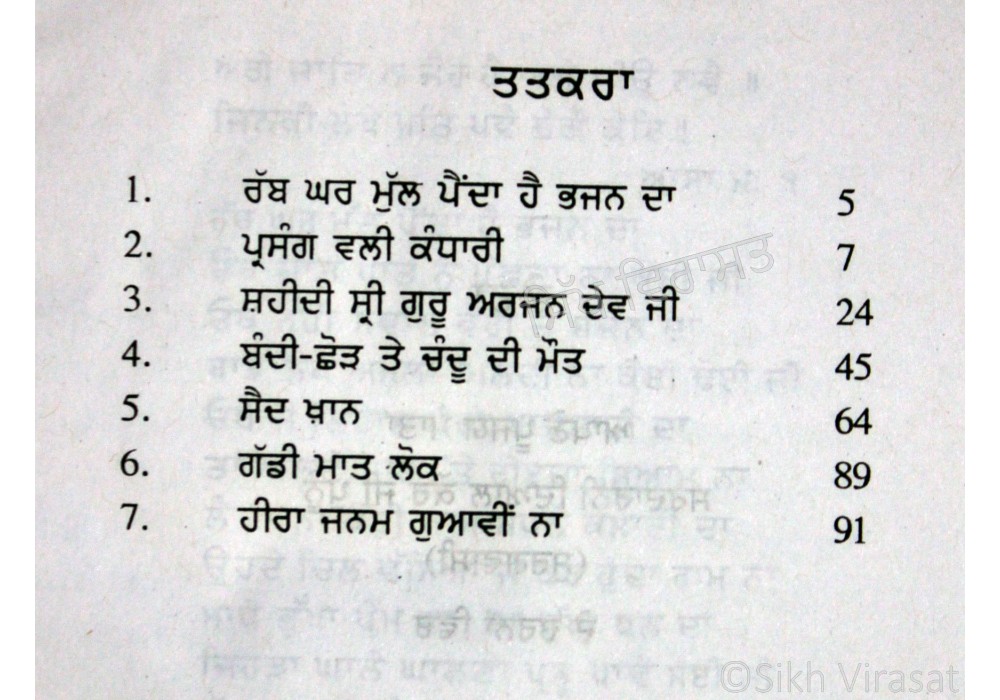 ਤਤਕਰਾ
1. ਰੱਬ ਘਰ ਮੁੱਲ ਪੈਂਦਾ ਹੈ ਭਜਨ ਦਾ 5
2. ਪ੍ਰਸੰਗ ਵਲੀ ਕੰਧਾਰੀ 7
3. ਸ਼ਹੀਦੀ ਸ੍ਰੀ ਗੁਰੂ ਅਰਜਨ ਦੇਵ ਜੀ 24
4. ਬੰਦੀ-ਛੋੜ ਤੇ ਚੰਦੂ ਦੀ ਮੌਤ 45
5. ਸੈਦ ਖ਼ਾਨ 64
6. ਗੱਡੀ ਮਾਤ ਲੋਕ 89
7. ਹੀਰਾ ਜਨਮ ਗੁਆਵੀਂ ਨਾ 91
ਸਿੱਖ ਵਿਰਾਸਤ
©Sikh Virasat